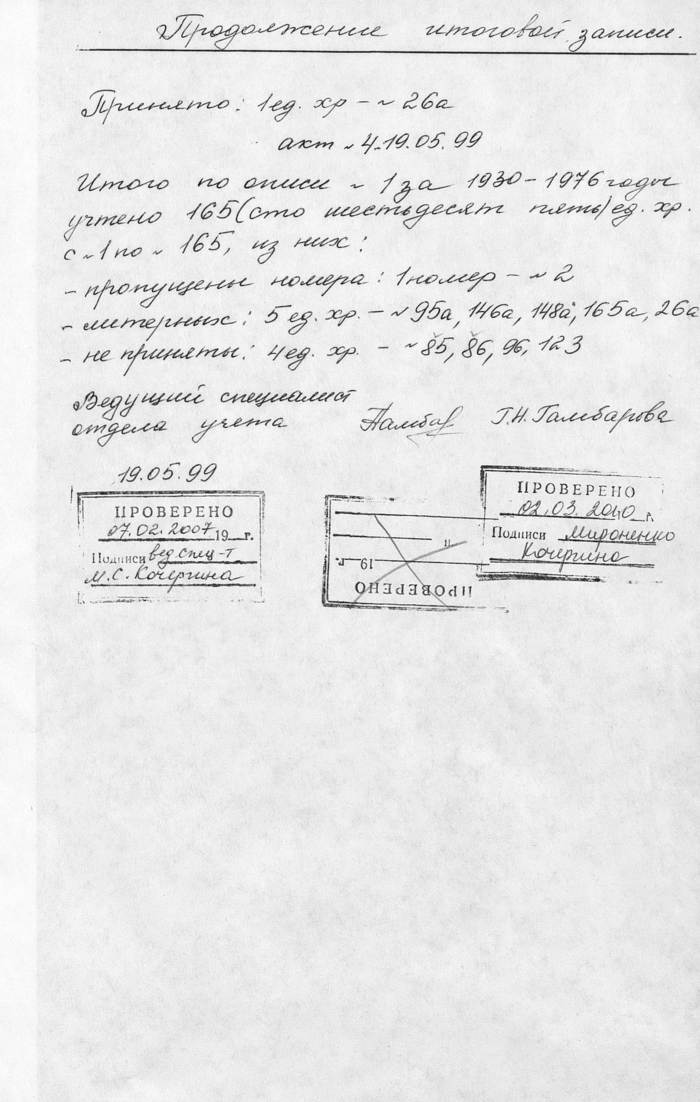 Продолжение итоговой записи.
Принято: 1 ед. хр – ~ 26а
акт ~ 4-19.05.99
Итого по описи ~ 1 за 1930-1976 годы
учтено 165 (сто шестьдесят пять) ед. хр.
с ~ 1 по ~ 165, из них:
- пропущены номера: 1 номер – ~ 2
- литерных: 5 ед. хр. – ~ 95а, 146а, 148а, 165а, 26а
- не приняты: 4 ед. хр. – ~ 85, 86, 96, 123
Ведущий специалист
отдела учета Г.Н. Гамбарова
19.05.99
ПРОВЕРЕНО
07.02.2007 19 г.
Подписи вед спец-т
М.С. Кочергина
ПРОВЕРЕНО
" 19 г.
ПРОВЕРЕНО
02.03. г.
Подписи Мироненко
Кочергина